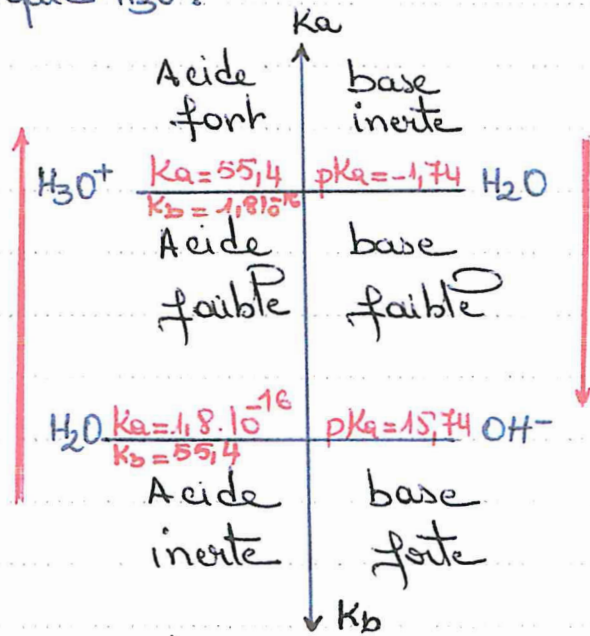 que H3O+.
Ka
Acide base
fort inerte
H3O+ Ka=55,4 pKa=-1,74 H2O
Kb=1,8 10^-16
Acide base
faible faible
H2O Ka=1,8.10^-16 pKa=15,74 OH-
Kb=55,4
Acide base
inerte forte
Kb